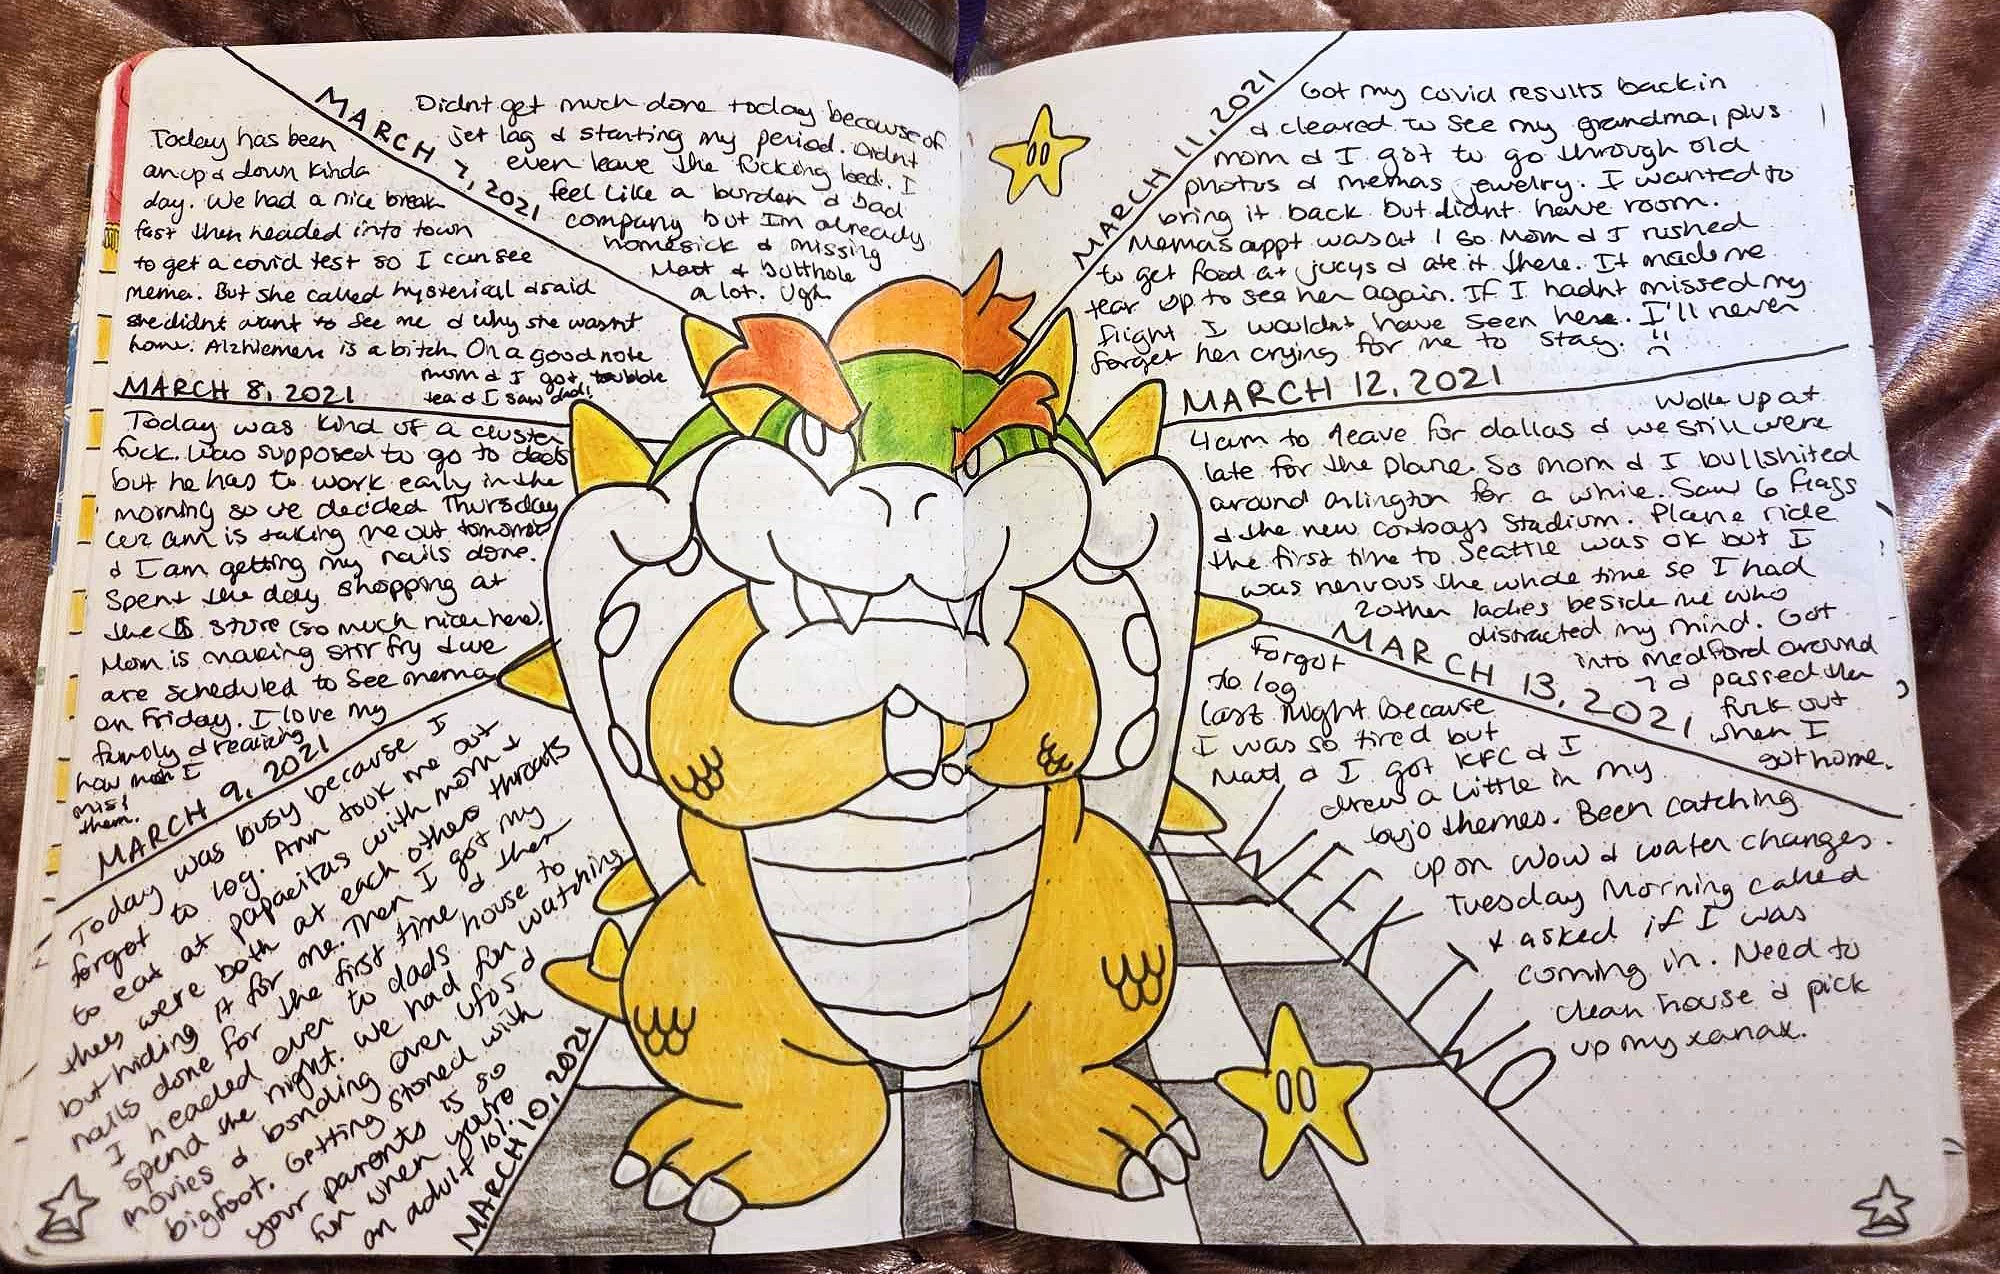 MARCH 7, 2021
Didnt get much done today because of
jet lag & starting my period. Didnt
even leave the fucking bed. I
feel like a burden & bad
company but Im already
homesick & missing
Matt & Butthole
a lot. Ugh
Today has been
an up & down kinda
day. We had a nice break
fast then headed into town
to get a covid test so I can see
mema. But she called hysterical & said
she didnt want to see me & why she wasnt
home. Alzhiemers is a bitch. On a good note
mom & I got bubble
tea & I saw dad!
MARCH 8, 2021
Today was kind of a cluster
fuck. Was supposed to go to dads
but he has to work early in the
morning so we decided Thursday
cuz am is taking me out tomorrow
& I am getting my nails done.
Spent the day shopping at
the store (so much nicer here).
Mom is making stir fry & we
are scheduled to see mema
on Friday. I love my
family & realizing
how much I
miss
them.
MARCH 9, 2021
Today was busy because I
forgot to log. Ann took me out
to eat at papacitas with mom &
they were both at each others throats
but hiding it for me. Then I got my
nails done for the first time & then
I headed over to dads house to
spend the night. We had fun watching
movies & bonding over ufos &
bigfoot. Getting stoned with
your parents is so
fun when you're
an adult lol.
MARCH 10, 2021
MARCH 11, 2021
Got my covid results back in
& cleared to see my grandma, plus
mom & I got to go through old
photos & memas jewelry. I wanted to
bring it back but didnt have room.
Memas appt was at 1 so Mom & I rushed
to get food at jucys & ate it there. It made me
tear up to see her again. If I hadnt missed my
flight I wouldnt have seen here. I'll never
forget her crying for me to stay. :(
MARCH 12, 2021
Woke up at
4am to leave for dallas & we still were
late for the plane. So mom & I bullshited
around arlington for a while. Saw 6 flags
& the new cowboys stadium. Plane ride
the first time to Seattle was ok but I
was nervous the whole time so I had
2 other ladies beside me who
distracted my mind. Got
into medford around
7 & passed the
fuck out
when I
got home.
MARCH 13, 2021
Forgot
to log
last night because
I was so tired but
Matt & I got KFC & I
drew a little in my
bujo themes. Been catching
up on WOW & water changes.
Tuesday Morning called
& asked if I was
coming in. Need to
clean house & pick
up my xanax.
WEEK TWO